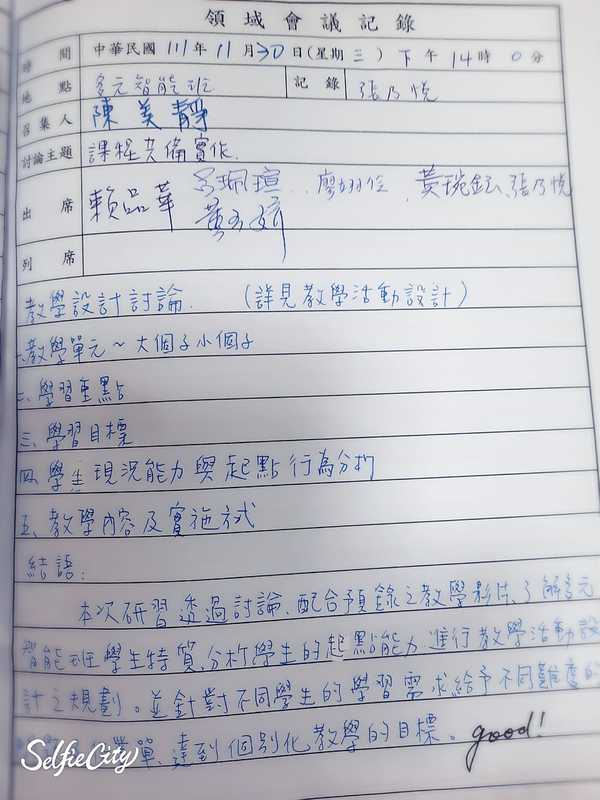 領域會議記錄
時間 中華民國111年11月30日(星期三)下午14時0分
地點 多元智能班 記錄 張乃悅
召集人 陳美靜
討論主題 課程共備實作.
出席 賴品華 呂珮瑄. 廖翊 黃琬 張乃悅
黃
列席
教學設計討論. (詳見教學活動設計)
一、教學單元~大個子小個子
二、學習重點
三、學習目標
四、學生現況能力與起點行為分析
五、教學內容及實施方式
結語:
本次研習透過討論、配合預錄之教學影片、了解多元
智能班學生特質、分析學生的起點能力進行教學活動設
計之規劃。並針對不同學生的學習需求給予不同難度的
單、達到個別化教學的目標。 good!
SelfieCity